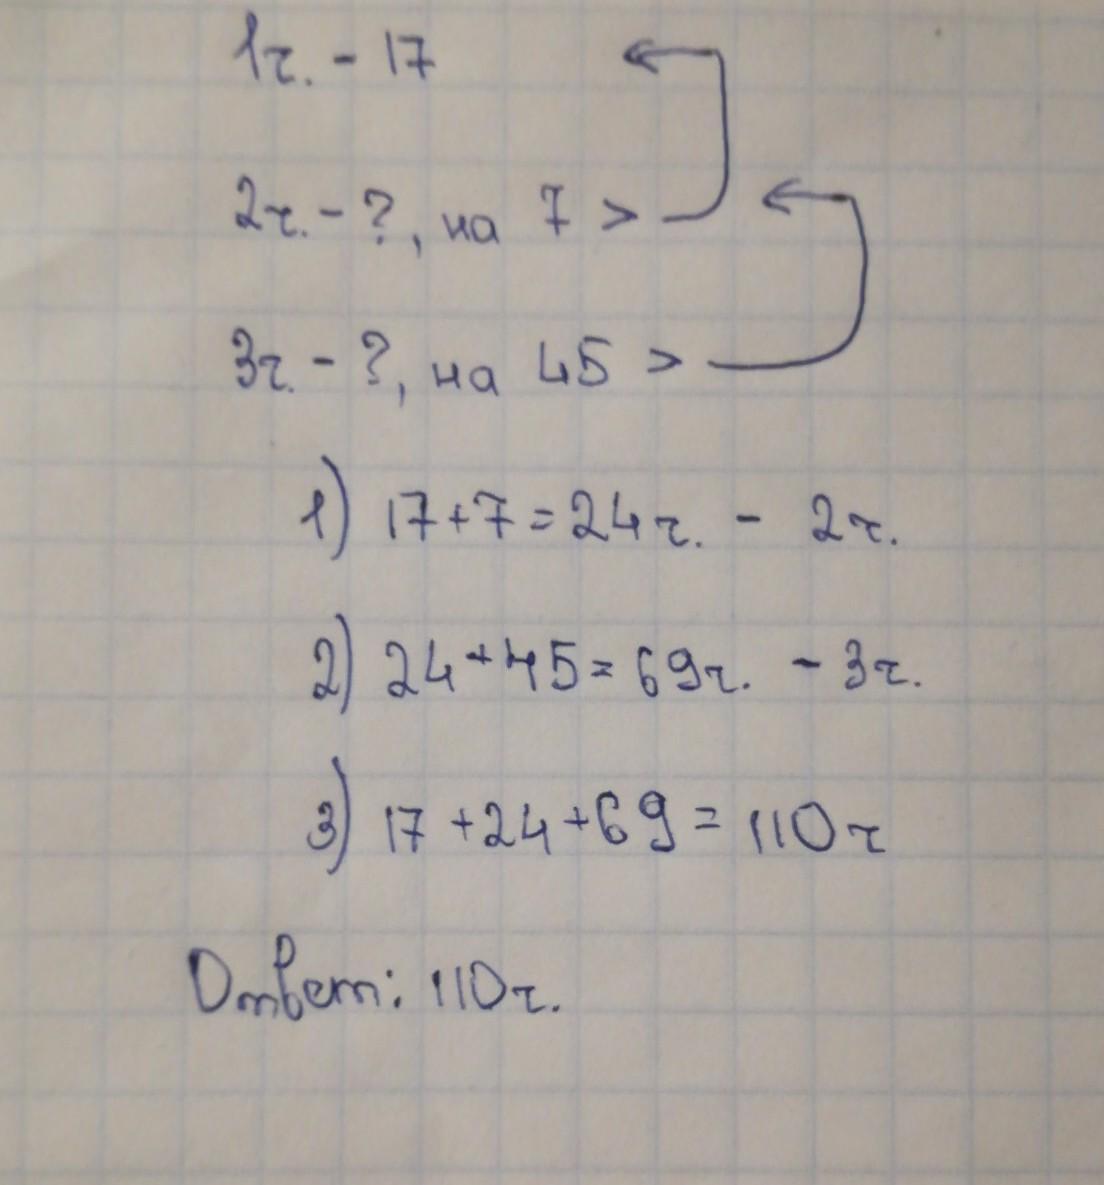 1ч. - 17
2ч. - ?, на 7 >
3ч. - ?, на 45 >
1) 17+7=24ч. - 2ч.
2) 24+45=69ч. - 3ч.
3) 17+24+69=110ч
Ответ: 110ч.